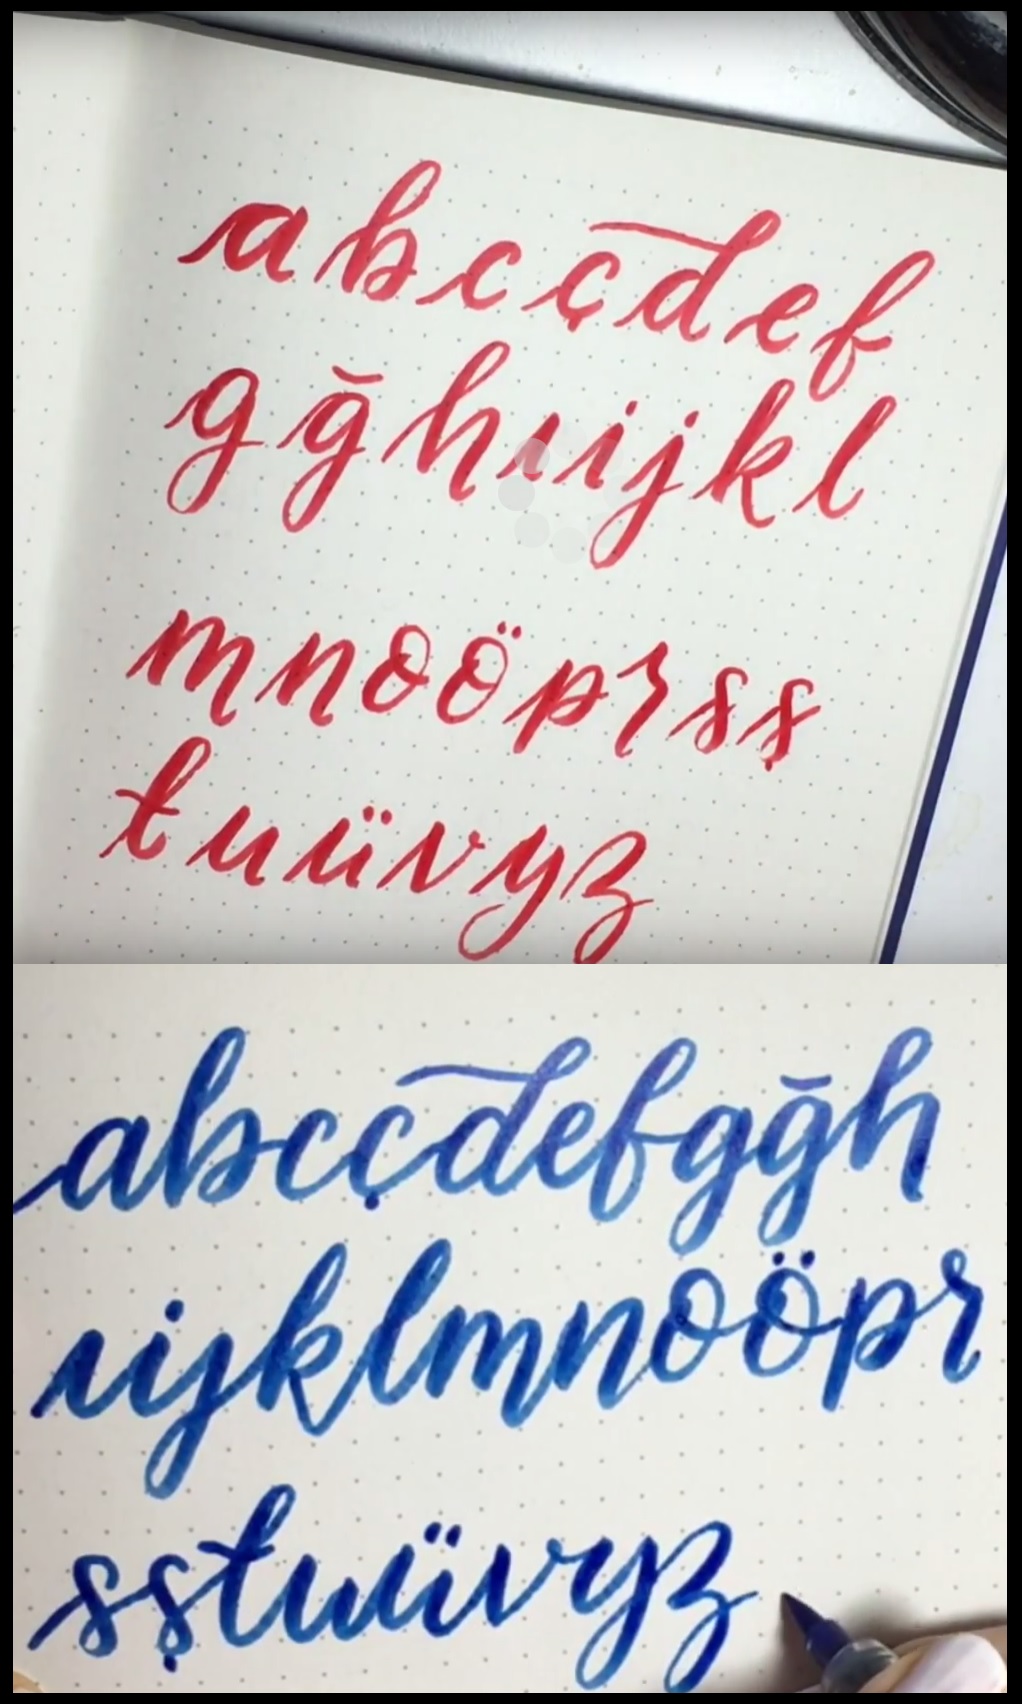 a b c ç d e f
g ğ h ı i j k l
m n o ö p r s ş
t u ü v y z
abcçdefgğh
ıijklmnoöpr
sştuüvyz